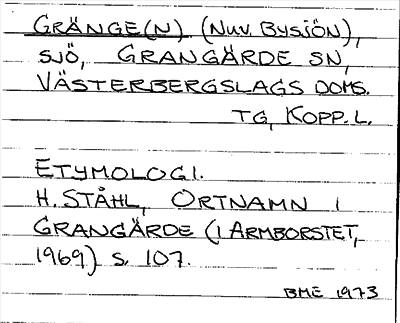 GRÄNGE(N) (NUV. BYSJÖN),
SJÖ, GRANGÄRDE SN,
VÄSTERBERGSLAGS DOMS.
TG, KOPP. L.
ETYMOLOGI.
H. STÅHL, ORTNAMN I
GRANGÄRDE (I ARMBORSTET,
1969) S. 107.
BME 1973